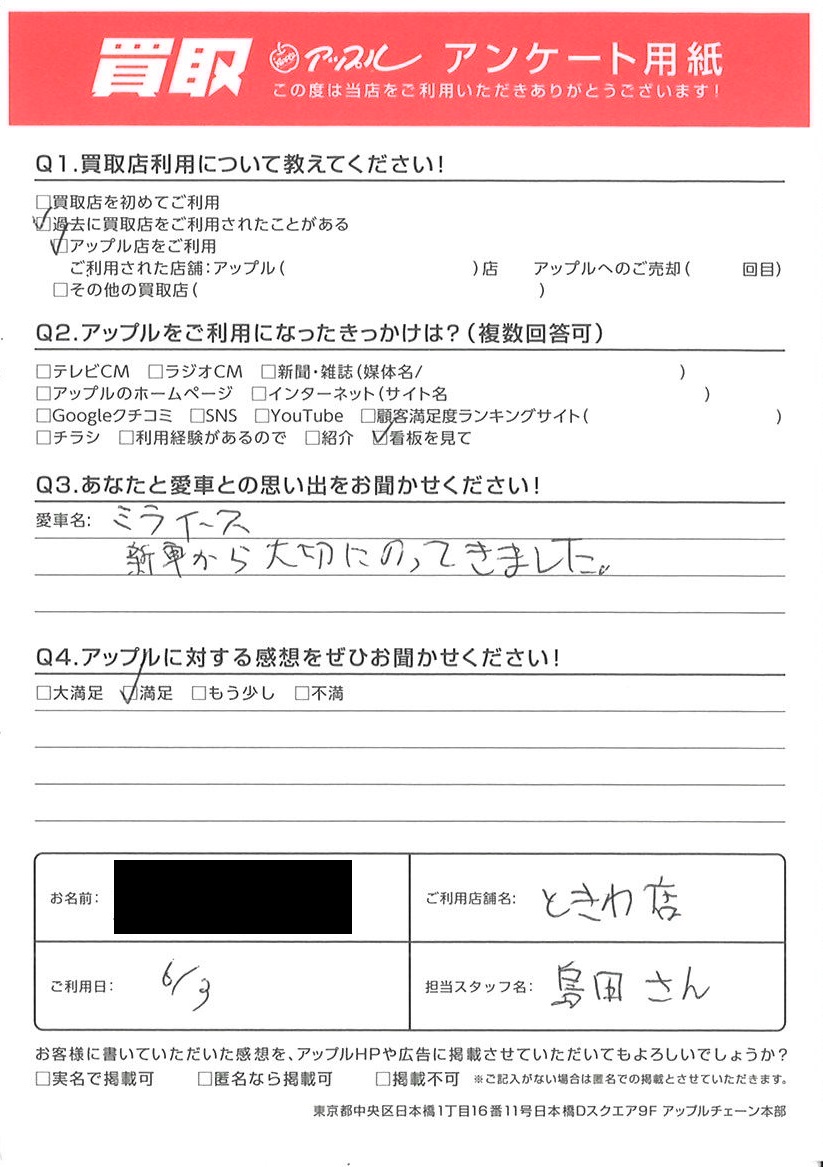 買取 アップル アンケート用紙
この度は当店をご利用いただきありがとうございます!
Q1.買取店利用について教えてください!
□買取店を初めてご利用
☑過去に買取店をご利用されたことがある
☑アップル店をご利用
ご利用された店舗:アップル( )店 アップルへのご売却( 回目)
□その他の買取店( )
Q2.アップルをご利用になったきっかけは?(複数回答可)
□テレビCM □ラジオCM □新聞・雑誌(媒体名/ )
□アップルのホームページ □インターネット(サイト名 )
□Googleクチコミ □SNS □YouTube □顧客満足度ランキングサイト( )
□チラシ □利用経験があるので □紹介 ☑看板を見て
Q3.あなたと愛車との思い出をお聞かせください!
愛車名: ミライース
新車から大切にのってきました。
Q4.アップルに対する感想をぜひお聞かせください!
□大満足 ☑満足 □もう少し □不満
お名前: ご利用店舗名: ときわ店
ご利用日: 6/3 担当スタッフ名: 島田さん
お客様に書いていただいた感想を、アップルHPや広告に掲載させていただいてもよろしいでしょうか?
□実名で掲載可 □匿名なら掲載可 □掲載不可 ※ご記入がない場合は匿名での掲載とさせていただきます。
東京都中央区日本橋1丁目16番11号日本橋Dスクエア9F アップルチェーン本部